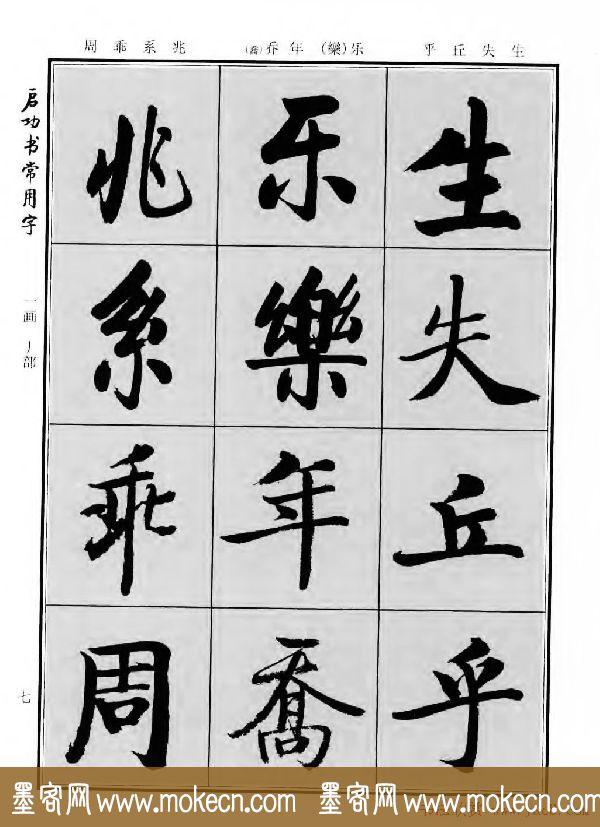 生失丘乎 乐(樂)年乔(喬) 兆系乖周
生失丘乎
乐樂年喬
兆系乖周
启功书常用字
一画 丿部
七
墨客网 www.mokecn.com 墨客网 www.mokecn.com